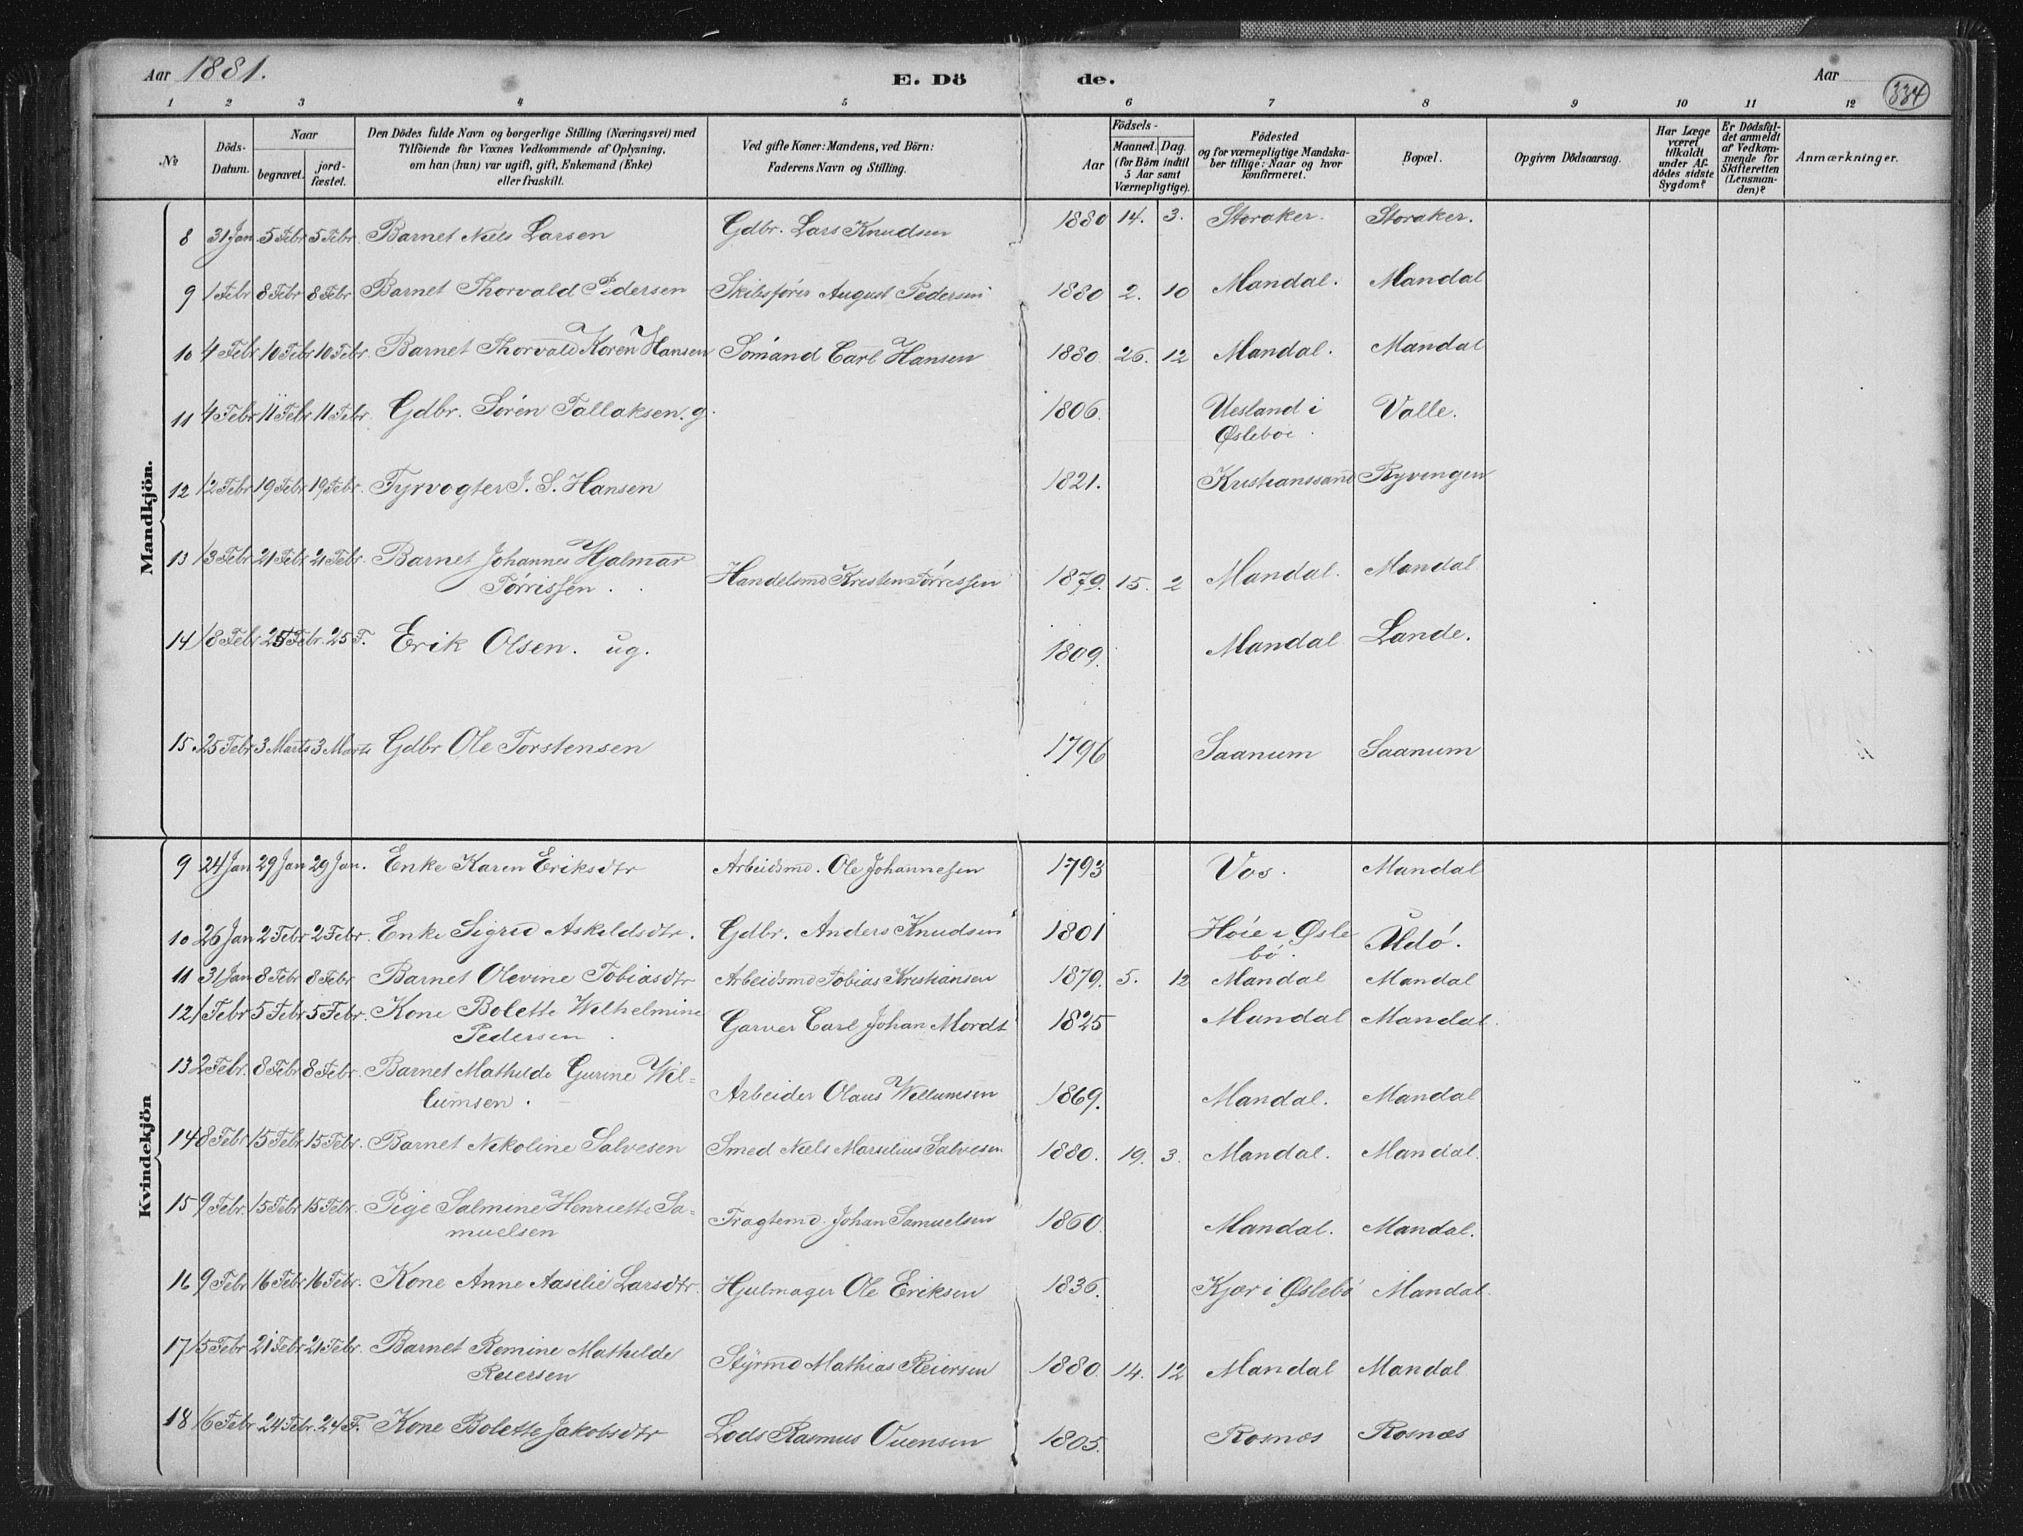 Aar 1881.
E. Dö de.
Aar
334
1 2 3 4 5 6 7 8 9 10 11 12
No
Döds-Datum.
Naar
begravet.
jordfæstet.
Den Dödes fulde Navn og borgerlige Stilling (Næringsvei) med
Tilföiende for Voxnes Vedkommende af Oplysning,
om han (hun) var ugift, gift, Enkemand (Enke)
eller fraskilt.
Ved gifte Koner: Mandens, ved Börn:
Faderens Navn og Stilling.
Aar
Födsels-
Maaned. Dag.
(for Börn indtil
5 Aar samt
Værnepligtige).
Födested
og for værnepligtige Mandska-
ber tillige: Naar og hvor
konfirmeret.
Bopæl.
Opgiven Dödsaarsag.
Har Læge
været
tilkaldt
under Af-
dödes sidste
Sygdom?
Er Dödsfal-
det anmeldt
af Vedkom-
mende for
Skifteretten
(Lensman-
den)?
Anmærkninger.
Mandkjön.
8 31 Jan 5 Febr 5 Febr. Barnet Niels Larsen Gdbr. Lars Knudsen 1880 14. 3. Storaker. Storaker.
9 1 Febr 8 Febr 8 Febr Barnet Thorvald Pedersen Skibsfører August Pedersen 1880 2. 10 Mandal. Mandal
10 4 Febr 10 Febr 10 Febr. Barnet Thorvald Koren Hansen Sömand Carl Hansen 1880. 26. 12 Mandal. Mandal
11 4 Febr 11 Febr 11 Febr. Gdbr. Sören Tallaksen. g. 1806. Uesland i Valle.
Øslebøe.
12 12 Febr 19 Febr 19 Febr. Fyrvogter J. S. Hansen 1821. Kristianssand Ryvingen
13 13 Febr 21 Febr 21 Febr. Barnet Johannes Hjalmar
Tørrissen. Handelsmd Kristen Tørrissen 1879. 15. 2 Mandal. Mandal.
14 18 Febr 25 Febr. 25 F. Erik Olsen. ug. 1809. Mandal Lande.
15 25 Febr 3 Marts 3 Marts Gdbr Ole Torstensen 1796 Saanum Saanum
Kvindekjön
9 24 Jan 29 Jan 29 Jan. Enke Karen Eriksdtr Arbeidsmd. Ole Johannesen 1793 Vos. Mandal
10 26 Jan 2 Febr 2 Febr. Enke Sigrid Askildsdtr. Gdbr. Anders Knudsen 1801 Høie i Øsle
bø. Udø.
11 31 Jan 8 Febr 8 Febr. Barnet Olevine Tobiasdtr Arbeidsmd Tobias Kristiansen 1879. 5. 12 Mandal Mandal
12 1 Febr 5 Febr 5 Febr. Kone Bolette Wilhelmine
Pedersen. Garver Carl Johan Mordt 1825 Mandal Mandal.
13 2 Febr. 8 Febr 8 Febr. Barnet Mathilde Gurine Wil-
lumsen. Arbeider Olaus Willumsen 1869. Mandal. Mandal
14 8 Febr 15 Febr 15 Febr. Barnet Nikoline Salvesen Smed Niels Marselius Salvesen 1880. 19. 3. Mandal. Mandal.
15 9 Febr. 15 Febr. 15 Febr. Pige Salmine Henriette Sa-
muelsen Fragtemd. Johan Samuelsen 1860. Mandal. Mandal.
16 9 Febr. 16 Febr 16 Febr. Kone Anne Aasilie Larsdtr. Hjulmager Ole Eriksen 1836. Kjær i Øslebø Mandal.
17 15 Febr 21 Febr 21 Febr. Barnet Remine Mathilde
Reiersen Styrmd Mathias Reiersen 1880. 14. 12 Mandal Mandal
18 16 Febr 24 Febr. 24 F. Kone Bolette Jakobsdtr Lods Rasmus Ouensen 1805. Rosnæs Rosnæs